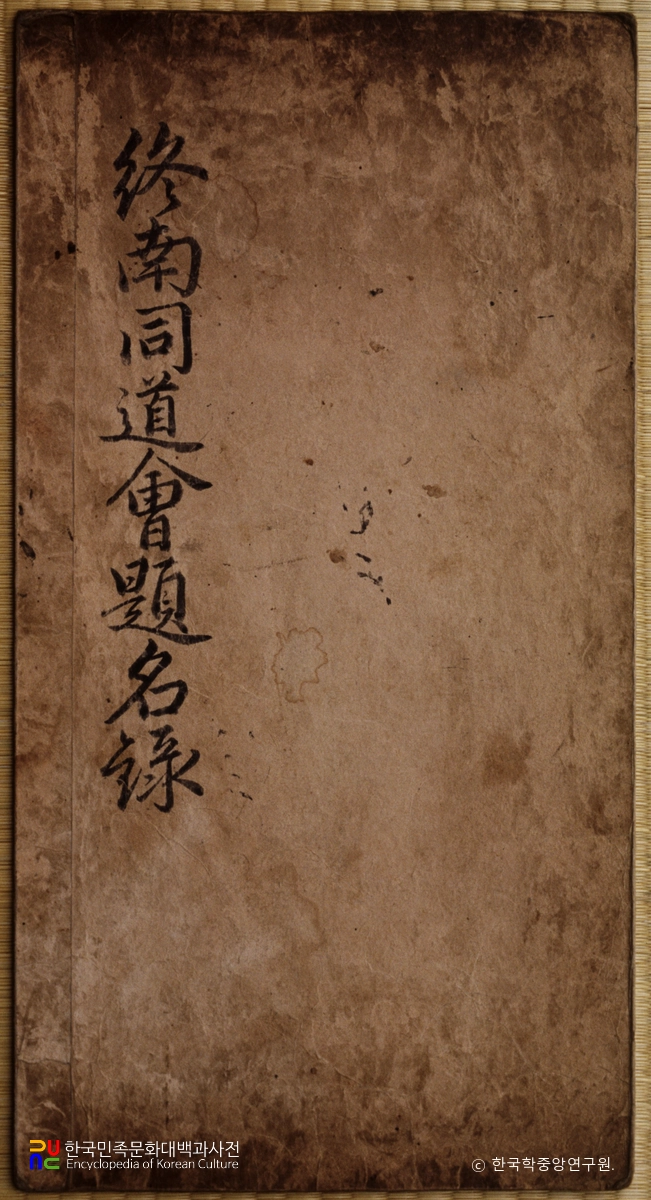 終南同道會題名錄
한국민족문화대백과사전
Encyclopedia of Korean Culture
ⓒ 한국학중앙연구원.